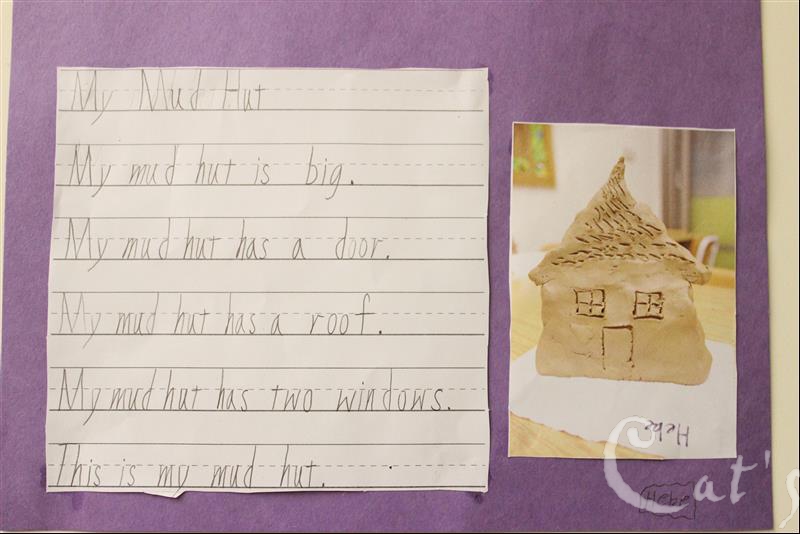 My Mud Hut
My mud hut is big.
My mud hut has a door.
My mud hut has a roof.
My mud hut has two windows.
This is my mud hut.
Hebe
Hebe
Cat's